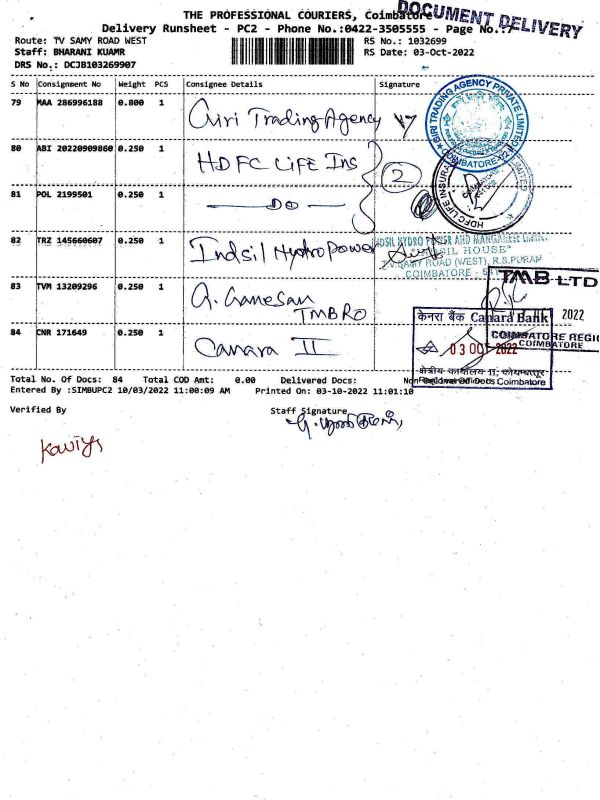 THE PROFESSIONAL COURIERS, Coimbatore
DOCUMENT DELIVERY
Delivery Runsheet - PC2 - Phone No.:0422-3505555 - Page No.:7
Route: TV SAMY ROAD WEST
RS No.: 1032699
Staff: BHARANI KUAMR
RS Date: 03-Oct-2022
DRS No.: DCJB103269907
S No Consignment No Weight PCS Consignee Details Signature
79 MAA 286996188 0.800 1 Giri Trading Agency
GIRI TRADING AGENCY PRIVATE LIMITED
COIMBATORE
80 ABI 20220909860 0.250 1 HDFC Life Ins
2
HDFC LIFE INSURA
81 POL 2199501 0.250 1 DO
82 TRZ 145660607 0.250 1 Indsil Hydro Power
INDSIL HYDRO POWER AND MANGANESE
"INDSIL HOUSE"
ROAD (WEST), R.S.PURAM
COIMBATORE - 641
83 TVM 13209296 0.250 1 G. Ganesan
TMBRO
TMB LTD
2022
COIMBATORE REGIO
COIMBATORE
84 CNR 171649 0.250 1 Canara II
केनरा बैंक Canara Bank
03 OCT 2022
क्षेत्रीय कार्यालय II, कोयम्बत्तूर
Coimbatore
Total No. Of Docs: 84 Total COD Amt: 0.00 Delivered Docs: Non Delivered Docs
Entered By :SIMBUPC2 10/03/2022 11:00:09 AM Printed On: 03-10-2022 11:01:10
Verified By
Staff Signature
Kaviya